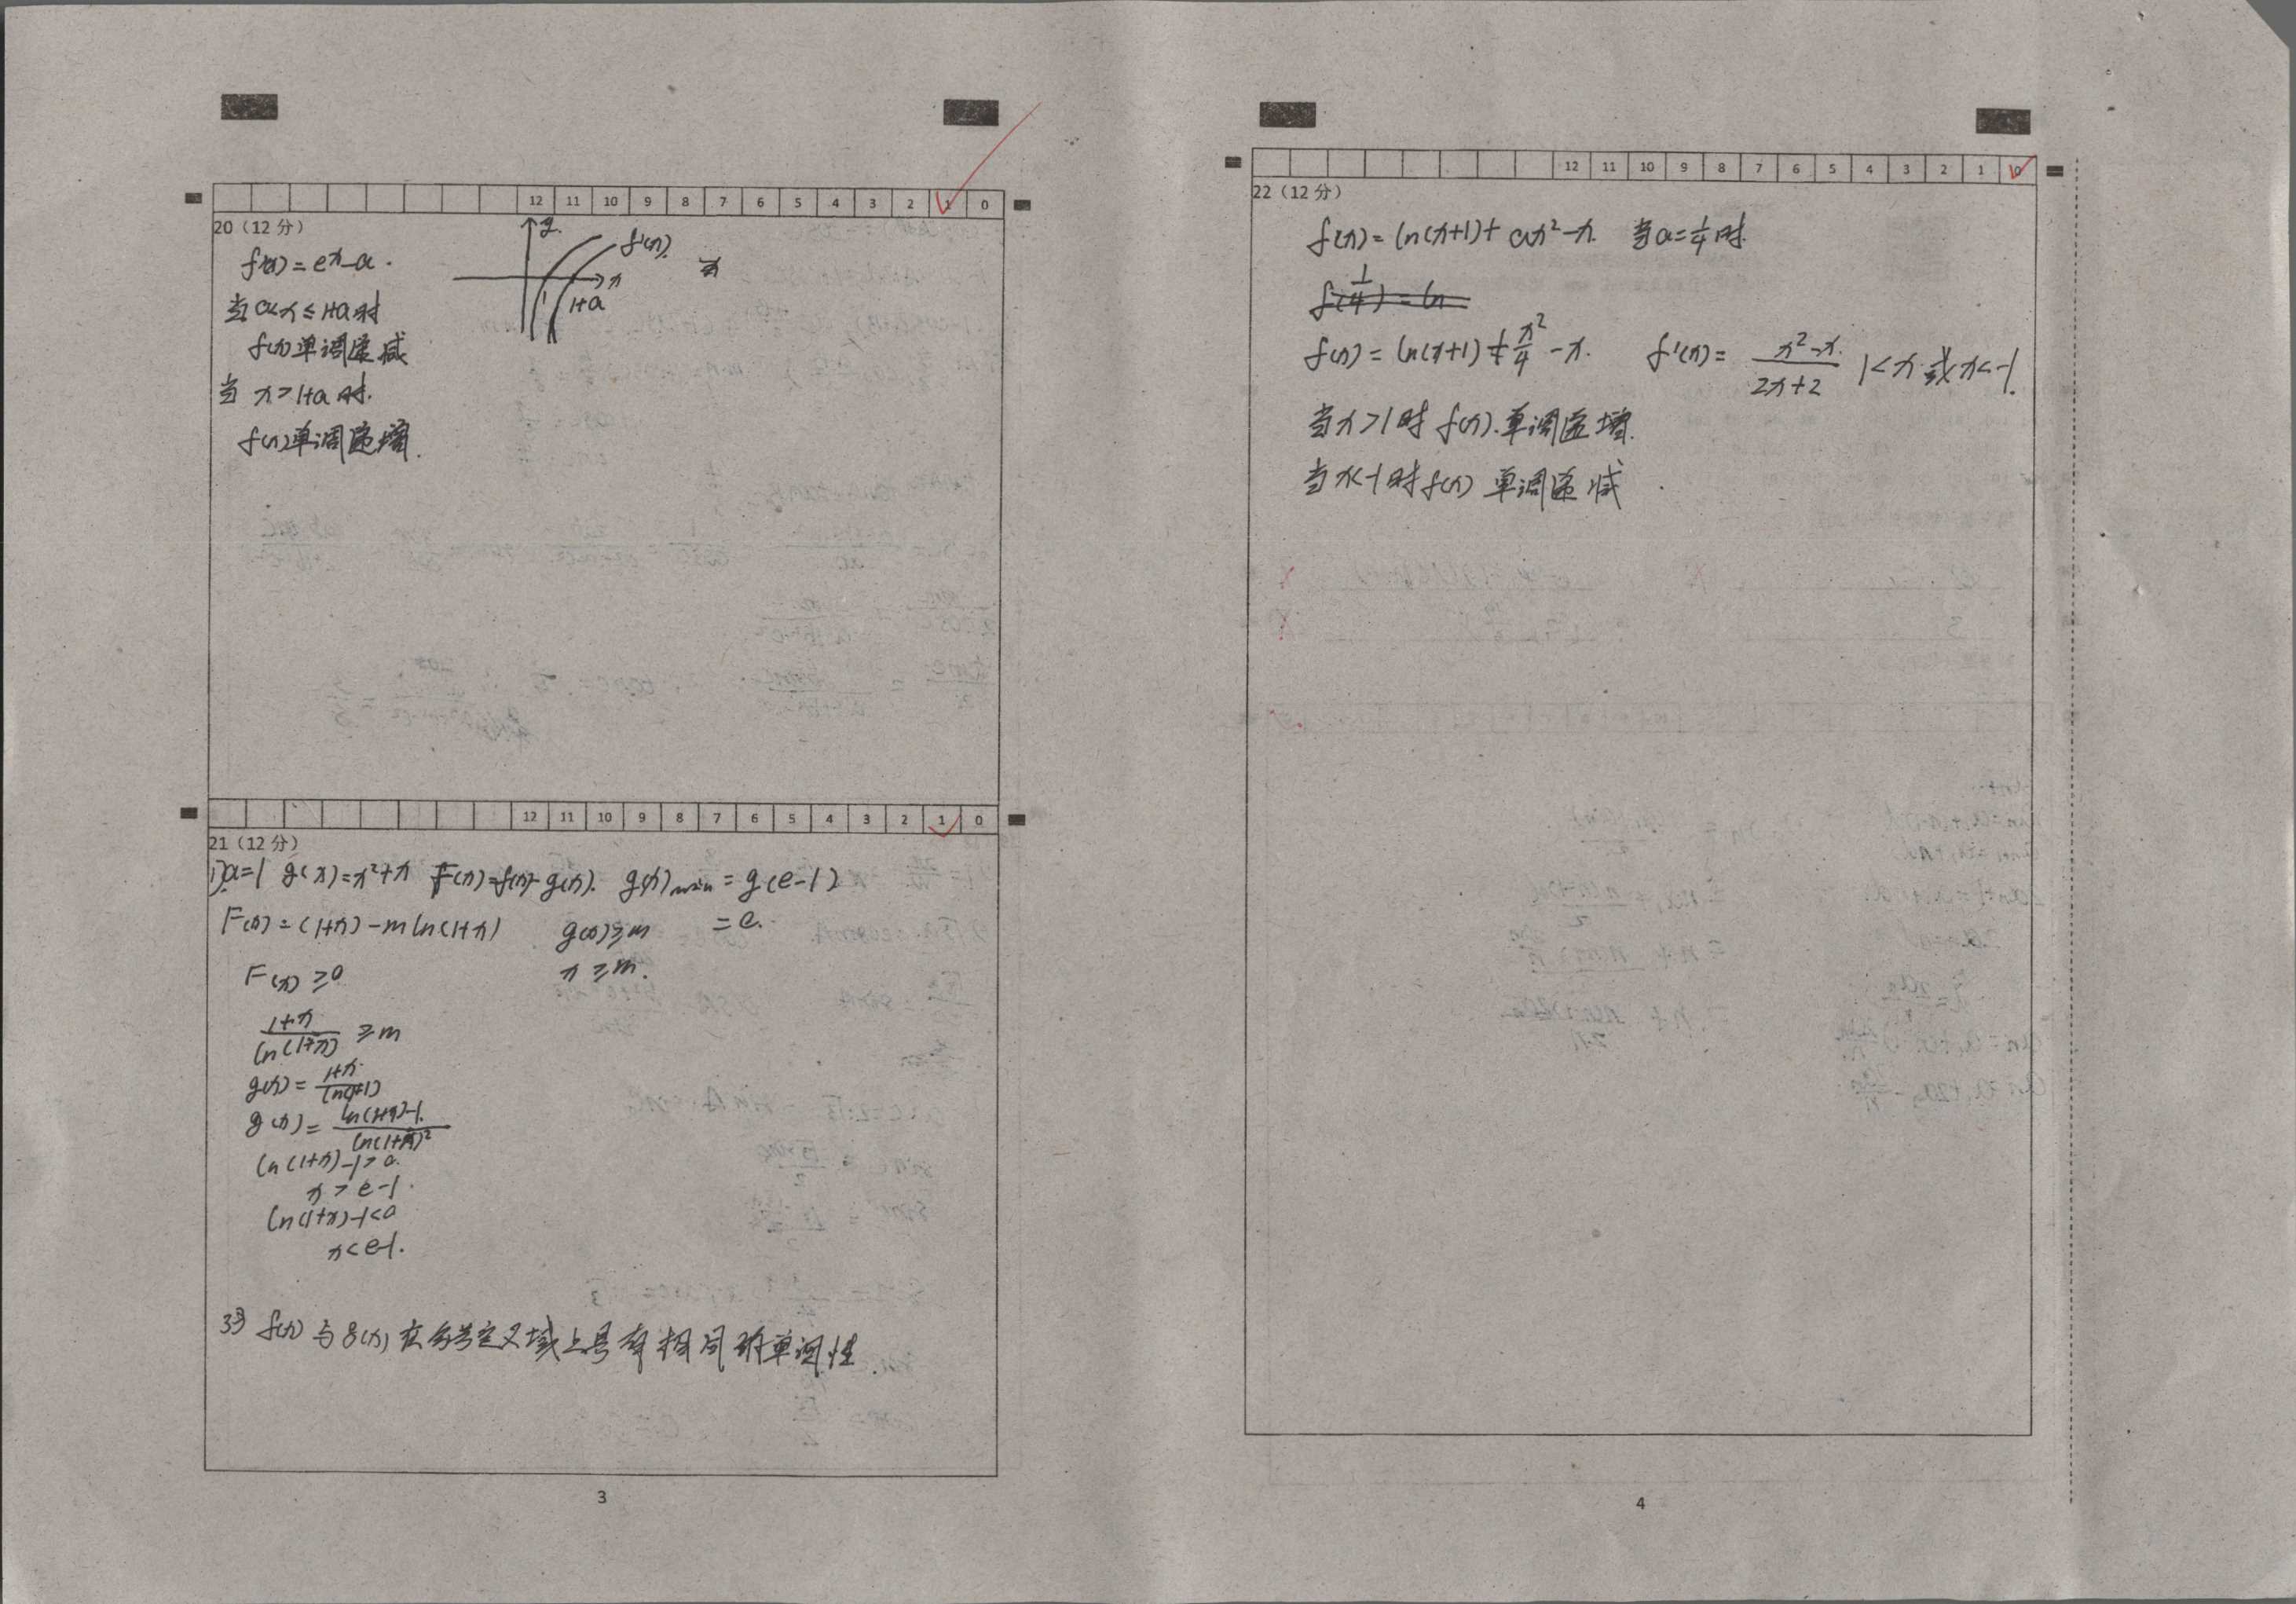 12 11 10 9 8 7 6 5 4 3 2 1 0
20（12 分）
f'(x)=e^x-a.
y
f'(x)
x
1
1+a
当 0<x≤1+a时
f(x)单调递减
当 x>1+a 时.
f(x)单调递增.
12 11 10 9 8 7 6 5 4 3 2 1 0
21（12 分）
1) a=1 g(x)=x²+x F(x)=f(x)-g(x). g(x)min=g(e-1)
=e.
F(x)=(1+x)-mln(1+x)
g(x)≥m
x≥m.
F(x)≥0
1+x/ln(1+x) ≥m
g(x)=1+x/ln(x+1)
g'(x)=ln(1+x)-1/(ln(1+x))²
ln(1+x)-1>0.
x>e-1.
ln(1+x)-1<0
x<e-1.
3) f(x)与g(x)在参考定义域上具有相同的单调性.
3
12 11 10 9 8 7 6 5 4 3 2 1 0
22（12 分）
f(x)=ln(x+1)+ax²-x. 当a=1/4时.
f(1/4)=ln
f(x)=ln(x+1)+x²/4-x. f'(x)=x²-x./2x+2 1<x 或x<-1.
当x>1时 f(x).单调递增.
当x<-1时f(x) 单调递减.
4